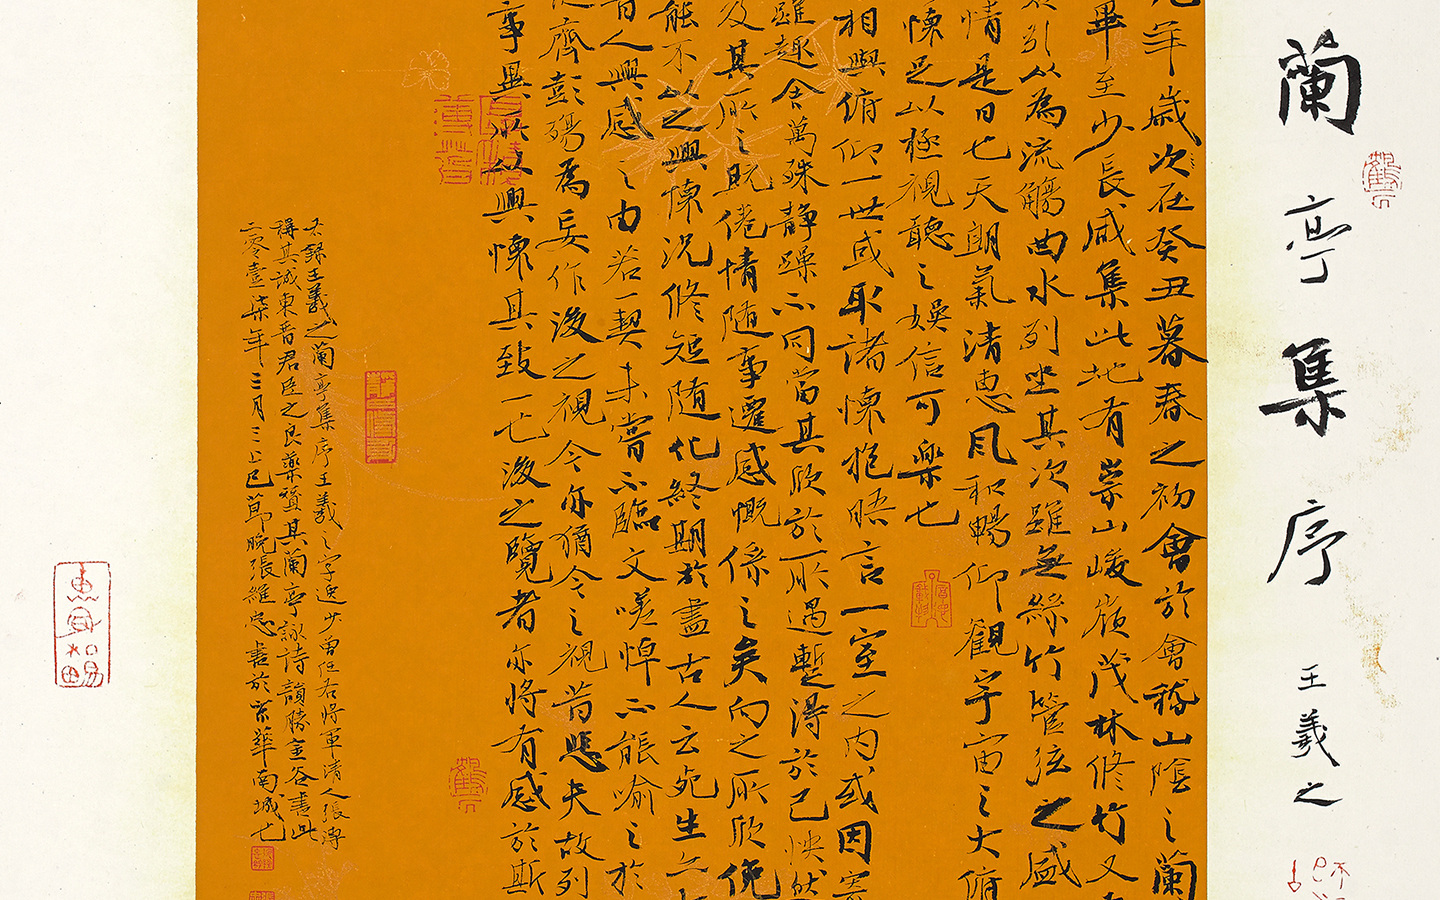 蘭亭集序
王羲之
年歲次在癸丑暮春之初會於會稽山陰之蘭
畢至少長咸集此地有崇山峻嶺茂林修竹又
引以為流觴曲水列坐其次雖無絲竹管弦之盛
情是日也天朗氣清惠風和暢仰觀宇宙之大俯
懷足以極視聽之娛信可樂也
相與俯仰一世或取諸懷抱晤言一室之內或因寄
雖趣舍萬殊靜躁不同當其欣於所遇暫得於己怏然
及其所之既倦情隨事遷感慨係之矣向之所欣俛
能不以之興懷況修短隨化終期於盡古人云死生亦
昔人興感之由若一契未嘗不臨文嗟悼不能喻之於
齊彭殤為妄作後之視今亦猶今之視昔悲夫故列
事異所以興懷其致一也後之覽者亦將有感於斯
右錄王羲之蘭亭集序王羲之字逸少曾任右將軍清人張溥
稱其誠東晉君臣之良藥贊其蘭亭詠詩韻勝金谷書此
二零壹柒年三月三上巳節晚張維忠書於京華南城也